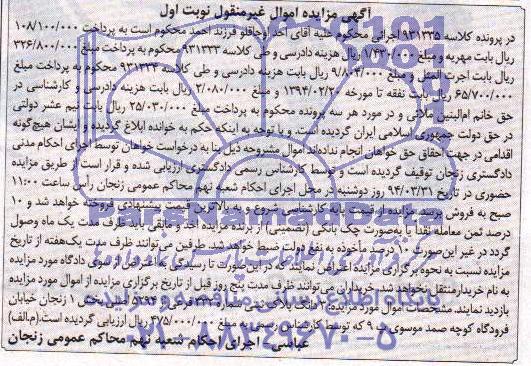 آگهی مزایده اموال غیرمنقول نوبت اول
در پرونده کلاسه ۹۳۱۳۳۵ اجرائی محکوم علیه آقای احد اوجاقلو فرزند احمد محکوم است به پرداخت ۱۰۸/۱۰۰/۰۰۰
ریال بابت مهریه و مبلغ ۱/۴۳۰/۰۰۰ ریال هزینه دادرسی و طی کلاسه ۹۳۱۳۳۳ محکوم به پرداخت مبلغ ۳۲۶/۸۰۰/۰۰۰
ریال بابت اجرت المثل و مبلغ ۹/۸۰۴/۰۰۰ ریال بابت هزینه دادرسی و طی کلاسه ۹۳۱۳۳۴ محکوم به پرداخت مبلغ
۶۵/۷۰۰/۰۰۰ ریال بابت نفقه تا مورخه ۱۳۹۴/۰۲/۲۰ و مبلغ ۳/۰۸۰/۰۰۰ ریال بابت هزینه دادرسی و کارشناسی در
حق خانم ام‌البنین ملائی و در مورد هر سه پرونده محکوم به پرداخت مبلغ ۲۵/۰۳۰/۰۰۰ ریال بابت نیم عشر دولتی
در حق دولت جمهوری اسلامی ایران گردیده است. و با توجه به اینکه حکم به خوانده ابلاغ گردیده و ایشان هیچگونه
اقدامی در جهت احقاق حق خواهان انجام نداده‌اند اموال مشروحه ذیل بنا به درخواست خواهان توسط اجرای احکام مدنی
دادگستری زنجان توقیف گردیده است و توسط کارشناس رسمی دادگستری ارزیابی شده و قرار است از طریق مزایده
حضوری در تاریخ ۹۴/۰۳/۳۱ روز دوشنبه در محل اجرای احکام شعبه نهم محاکم عمومی زنجان رأس ساعت ۱۱:۰۰
صبح به فروش برسد. مزایده از قیمت پایه کارشناسی شروع و به بالاترین قیمت پیشنهادی فروخته خواهد شد و ۱۰
درصد ثمن معامله نقداً یا به‌صورت چک بانکی (تضمینی) از برنده مزایده اخذ و مابقی باید ظرف مدت یک ماه وصول
گردد در غیر این صورت ۱۰ درصد مأخوذه به نفع دولت ضبط خواهد شد. طرفین می‌توانند ظرف مدت یک‌هفته از تاریخ
مزایده نسبت به نحوه برگزاری مزایده اعتراض نمایند که در این صورت تا رسیدگی به اعتراض از سوی دادگاه مورد مزایده
به نام خریدار منتقل نخواهد شد. خریداران می‌توانند ظرف مدت پنج روز قبل از تاریخ برگزاری مزایده از اموال مورد مزایده
بازدید نمایند. مشخصات اموال مورد مزایده: ملک پلاک ثبتی شماره فرعی از اصلی بخش ۱ زنجان خیابان
فرودگاه کوچه صمد موسوی پ ۹ که توسط کارشناس رسمی به مبلغ ۴۷۵/۰۰۰/۰۰۰ ریال ارزیابی گردیده است.(م.الف)
عباسی - اجرای احکام شعبه نهم محاکم عمومی زنجان
ParsNamadData
پایگاه اطلاع رسانی مناقصه و مزایده
۰۲۱-۸۸۳۴۹۶۷۰-۵